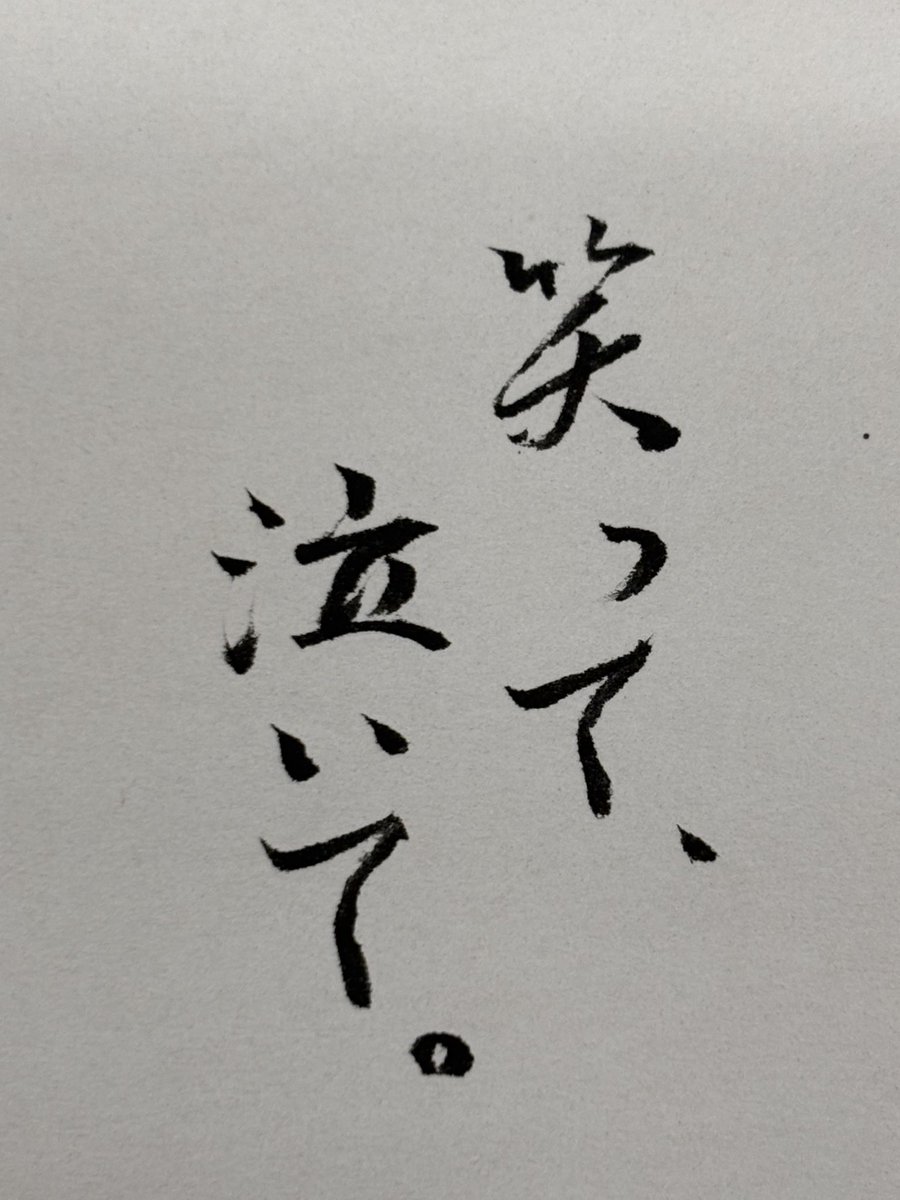 笑って、
泣いて。